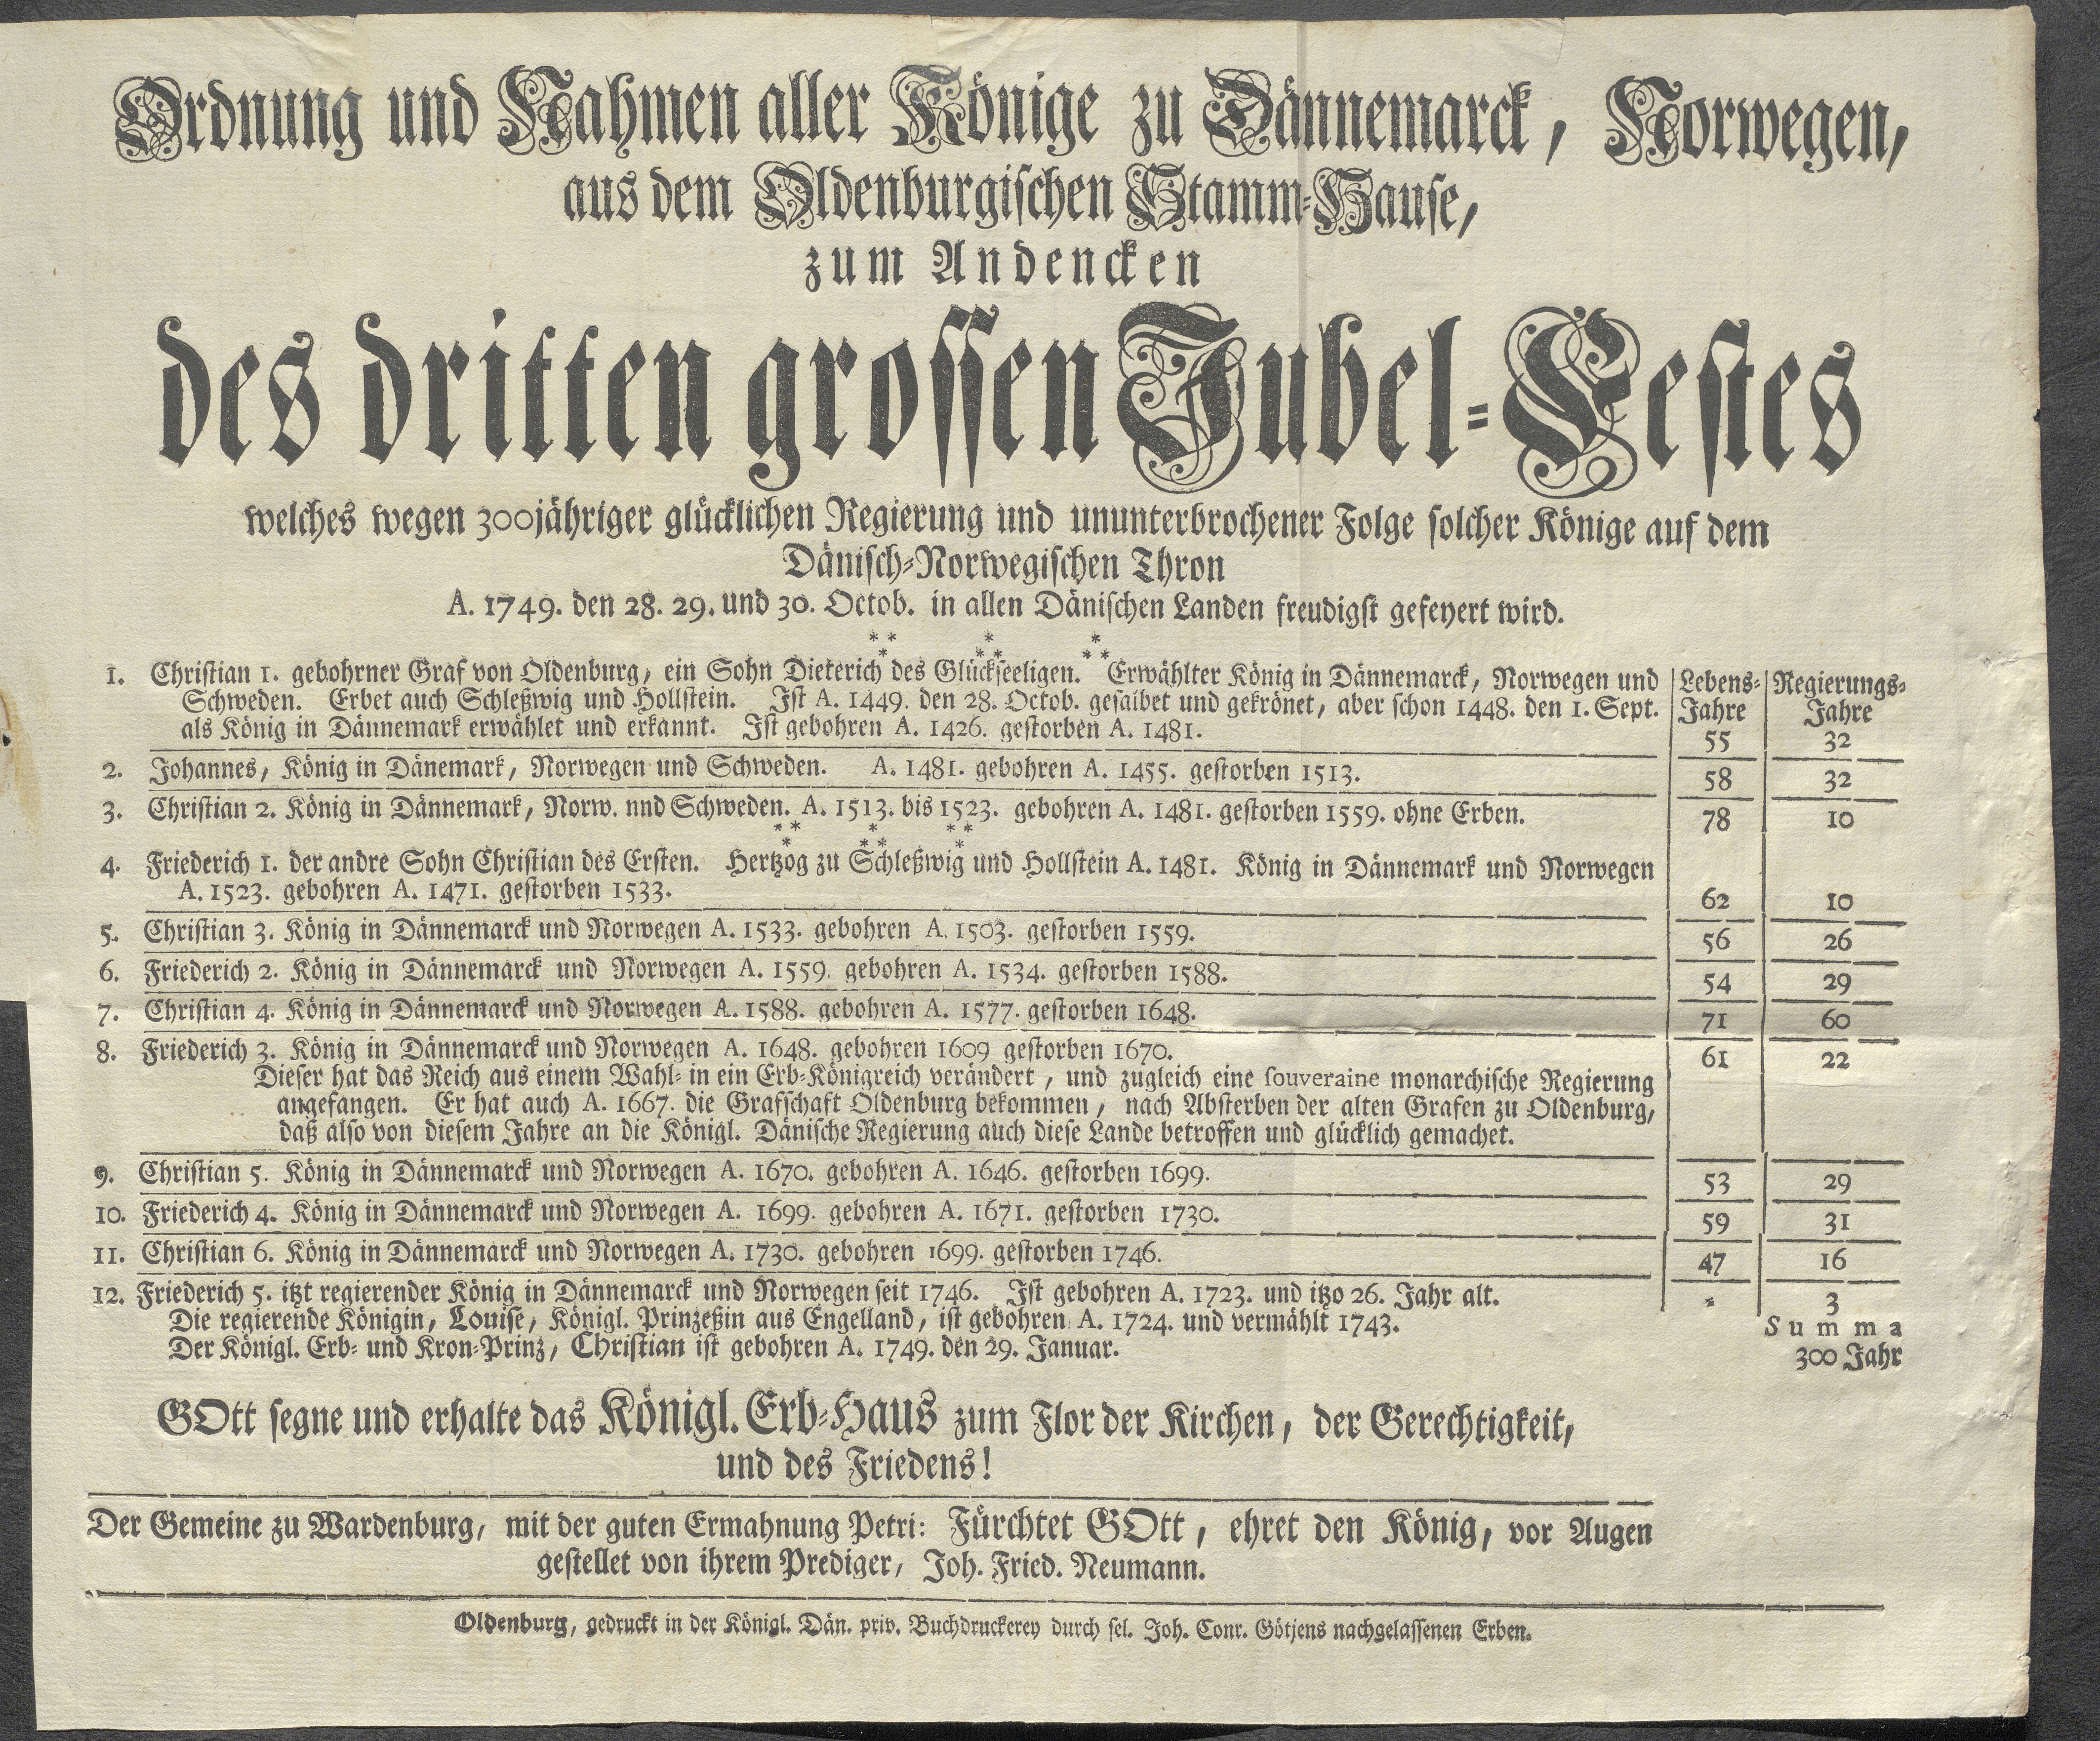 Ordnung und Nahmen aller Könige zu Dännemarck, Norwegen,
aus dem Oldenburgischen Stamm-Hause,
zum Andencken
des dritten grossen Jubel-Festes
welches wegen 300jähriger glücklichen Regierung und ununterbrochener Folge solcher Könige auf dem
Dänisch-Norwegischen Thron
A. 1749. den 28. 29. und 30. Octob. in allen Dänischen Landen freudigst gefeyert wird.
Lebens-Jahre Regierungs-Jahre
1. Christian 1. gebohrner Graf von Oldenburg, ein Sohn Dieterich des Glückseeligen. Erwählter König in Dännemarck, Norwegen und
Schweden. Erbet auch Schleßwig und Hollstein. Ist A. 1449. den 28. Octob. gesalbet und gekrönet, aber schon 1448. den 1. Sept.
als König in Dännemark erwählet und erkannt. Ist gebohren A. 1426. gestorben A. 1481. 55 32
2. Johannes, König in Dänemark, Norwegen und Schweden. A. 1481. gebohren A. 1455. gestorben 1513. 58 32
3. Christian 2. König in Dännemark, Norw. nnd Schweden. A. 1513. bis 1523. gebohren A. 1481. gestorben 1559. ohne Erben. 78 10
4. Friederich 1. der andre Sohn Christian des Ersten. Hertzog zu Schleßwig und Hollstein A. 1481. König in Dännemark und Norwegen
A. 1523. gebohren A. 1471. gestorben 1533. 62 10
5. Christian 3. König in Dännemarck und Norwegen A. 1533. gebohren A. 1503. gestorben 1559. 56 26
6. Friederich 2. König in Dännemarck und Norwegen A. 1559. gebohren A. 1534. gestorben 1588. 54 29
7. Christian 4. König in Dännemarck und Norwegen A. 1588. gebohren A. 1577. gestorben 1648. 71 60
8. Friederich 3. König in Dännemarck und Norwegen A. 1648. gebohren 1609 gestorben 1670. 61 22
Dieser hat das Reich aus einem Wahl- in ein Erb-Königreich verändert, und zugleich eine souveraine monarchische Regierung
angefangen. Er hat auch A. 1667. die Grafschaft Oldenburg bekommen, nach Absterben der alten Grafen zu Oldenburg,
daß also von diesem Jahre an die Königl. Dänische Regierung auch diese Lande betroffen und glücklich gemachet.
9. Christian 5. König in Dännemarck und Norwegen A. 1670. gebohren A. 1646. gestorben 1699. 53 29
10. Friederich 4. König in Dännemarck und Norwegen A. 1699. gebohren A. 1671. gestorben 1730. 59 31
11. Christian 6. König in Dännemarck und Norwegen A. 1730. gebohren 1699. gestorben 1746. 47 16
12. Friederich 5. itzt regierender König in Dännemarck und Norwegen seit 1746. Ist gebohren A. 1723. und itzo 26. Jahr alt. - 3
Die regierende Königin, Louise, Königl. Prinzeßin aus Engelland, ist gebohren A. 1724. und vermählt 1743. Summa
Der Königl. Erb- und Kron-Prinz, Christian ist gebohren A. 1749. den 29. Januar. 300 Jahr
GOtt segne und erhalte das Königl. Erb-Haus zum Flor der Kirchen, der Gerechtigkeit,
und des Friedens!
Der Gemeine zu Wardenburg, mit der guten Ermahnung Petri: Fürchtet GOtt, ehret den König, vor Augen
gestellet von ihrem Prediger, Joh. Fried. Neumann.
Oldenburg, gedruckt in der Königl. Dän. priv. Buchdruckerey durch sel. Joh. Conr. Götjens nachgelassenen Erben.